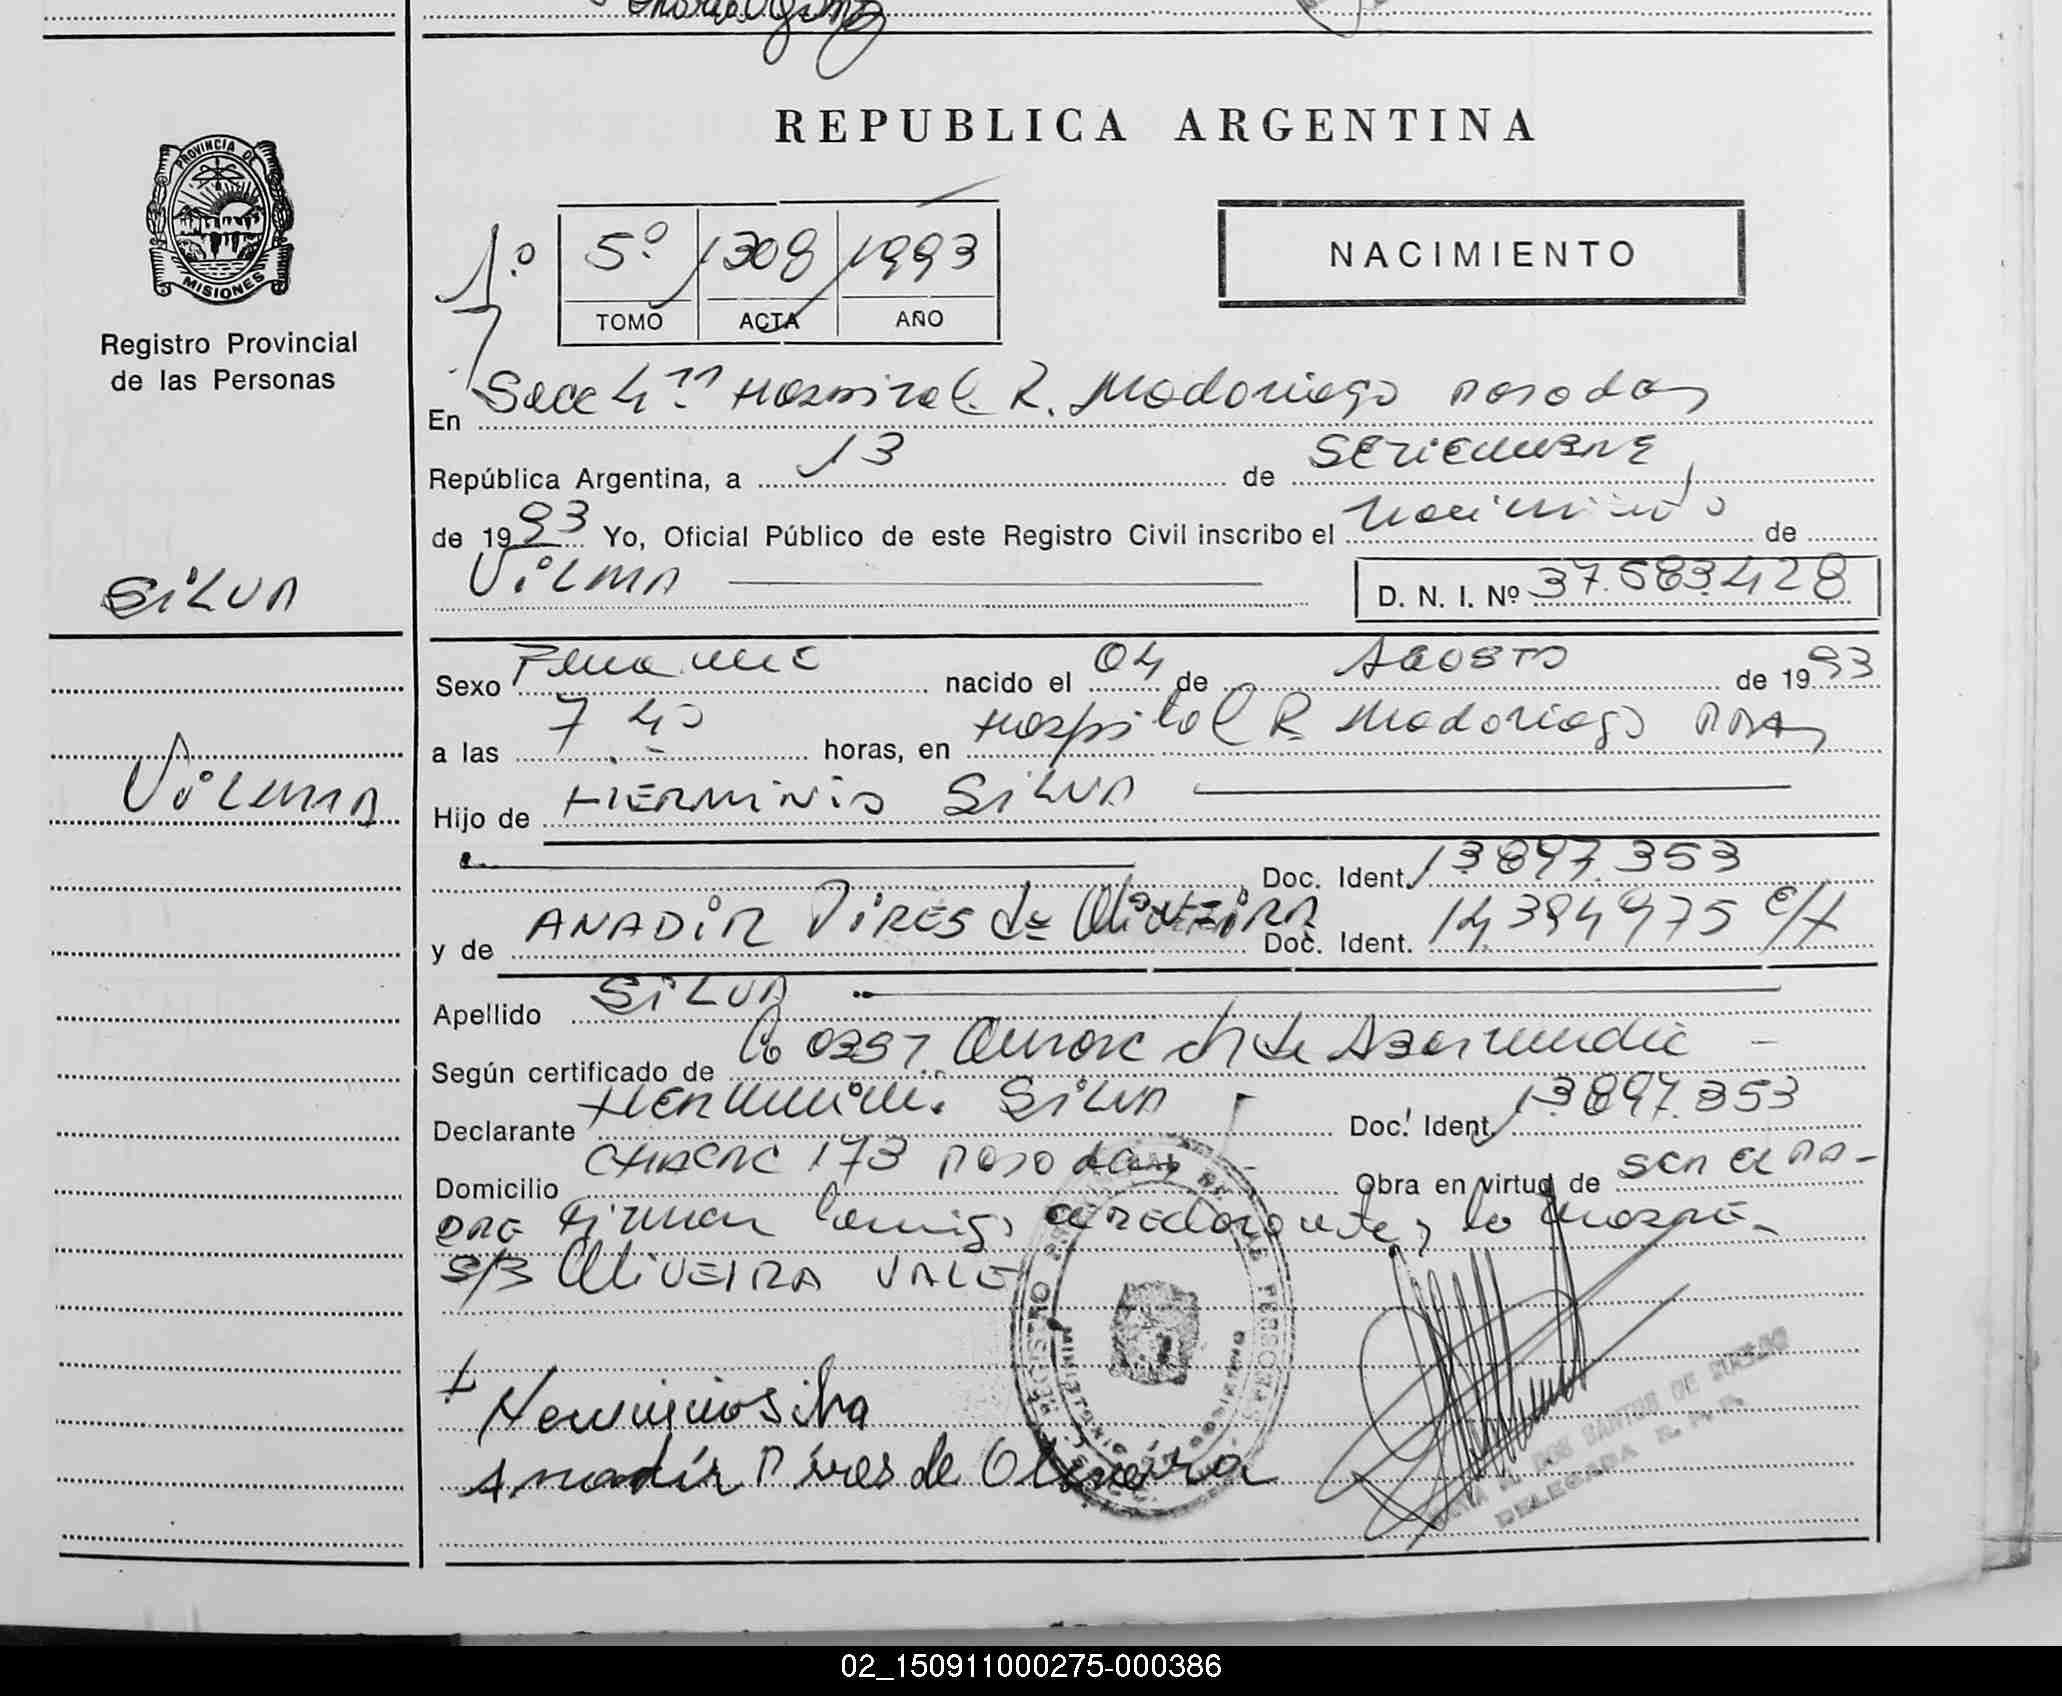 REPUBLICA ARGENTINA
PROVINCIA DE
MISIONES
Registro Provincial
de las Personas
NACIMIENTO
1º
5º 1308 1993
TOMO ACTA AÑO
En Secc 4ta Hospital R. Madariaga Posadas
República Argentina, a 13 de SETIEMBRE
de 1993 Yo, Oficial Público de este Registro Civil inscribo el Nacimiento de
VILMA D. N. I. Nº 37.583.428
SILVA
Sexo Femenino nacido el 04 de AGOSTO de 1993
a las 7 40 horas, en Hospital R. Madariaga PDAS
VILMA
Hijo de HERMINIO SILVA
Doc. Ident. 13897.353
y de ANADIR PIRES de OLIVEIRA Doc. Ident. 14.394975
Apellido SILVA
Según certificado de
Declarante HERMINIO SILVA Doc. Ident. 13.897.353
Domicilio CHACRA 173 Posadas Obra en virtud de SER EL PA-
DRE Firman conmigo el declarante, la MADRE
S/B OLIVEIRA VALE
Herminio silva
Anadír Píres de Oliveira
REGISTRO PROVINCIAL DE LAS PERSONAS
MINISTERIO DE GOBIERNO
DOS SANTOS DE
DELEGADA R. P. P.
02_150911000275-000386